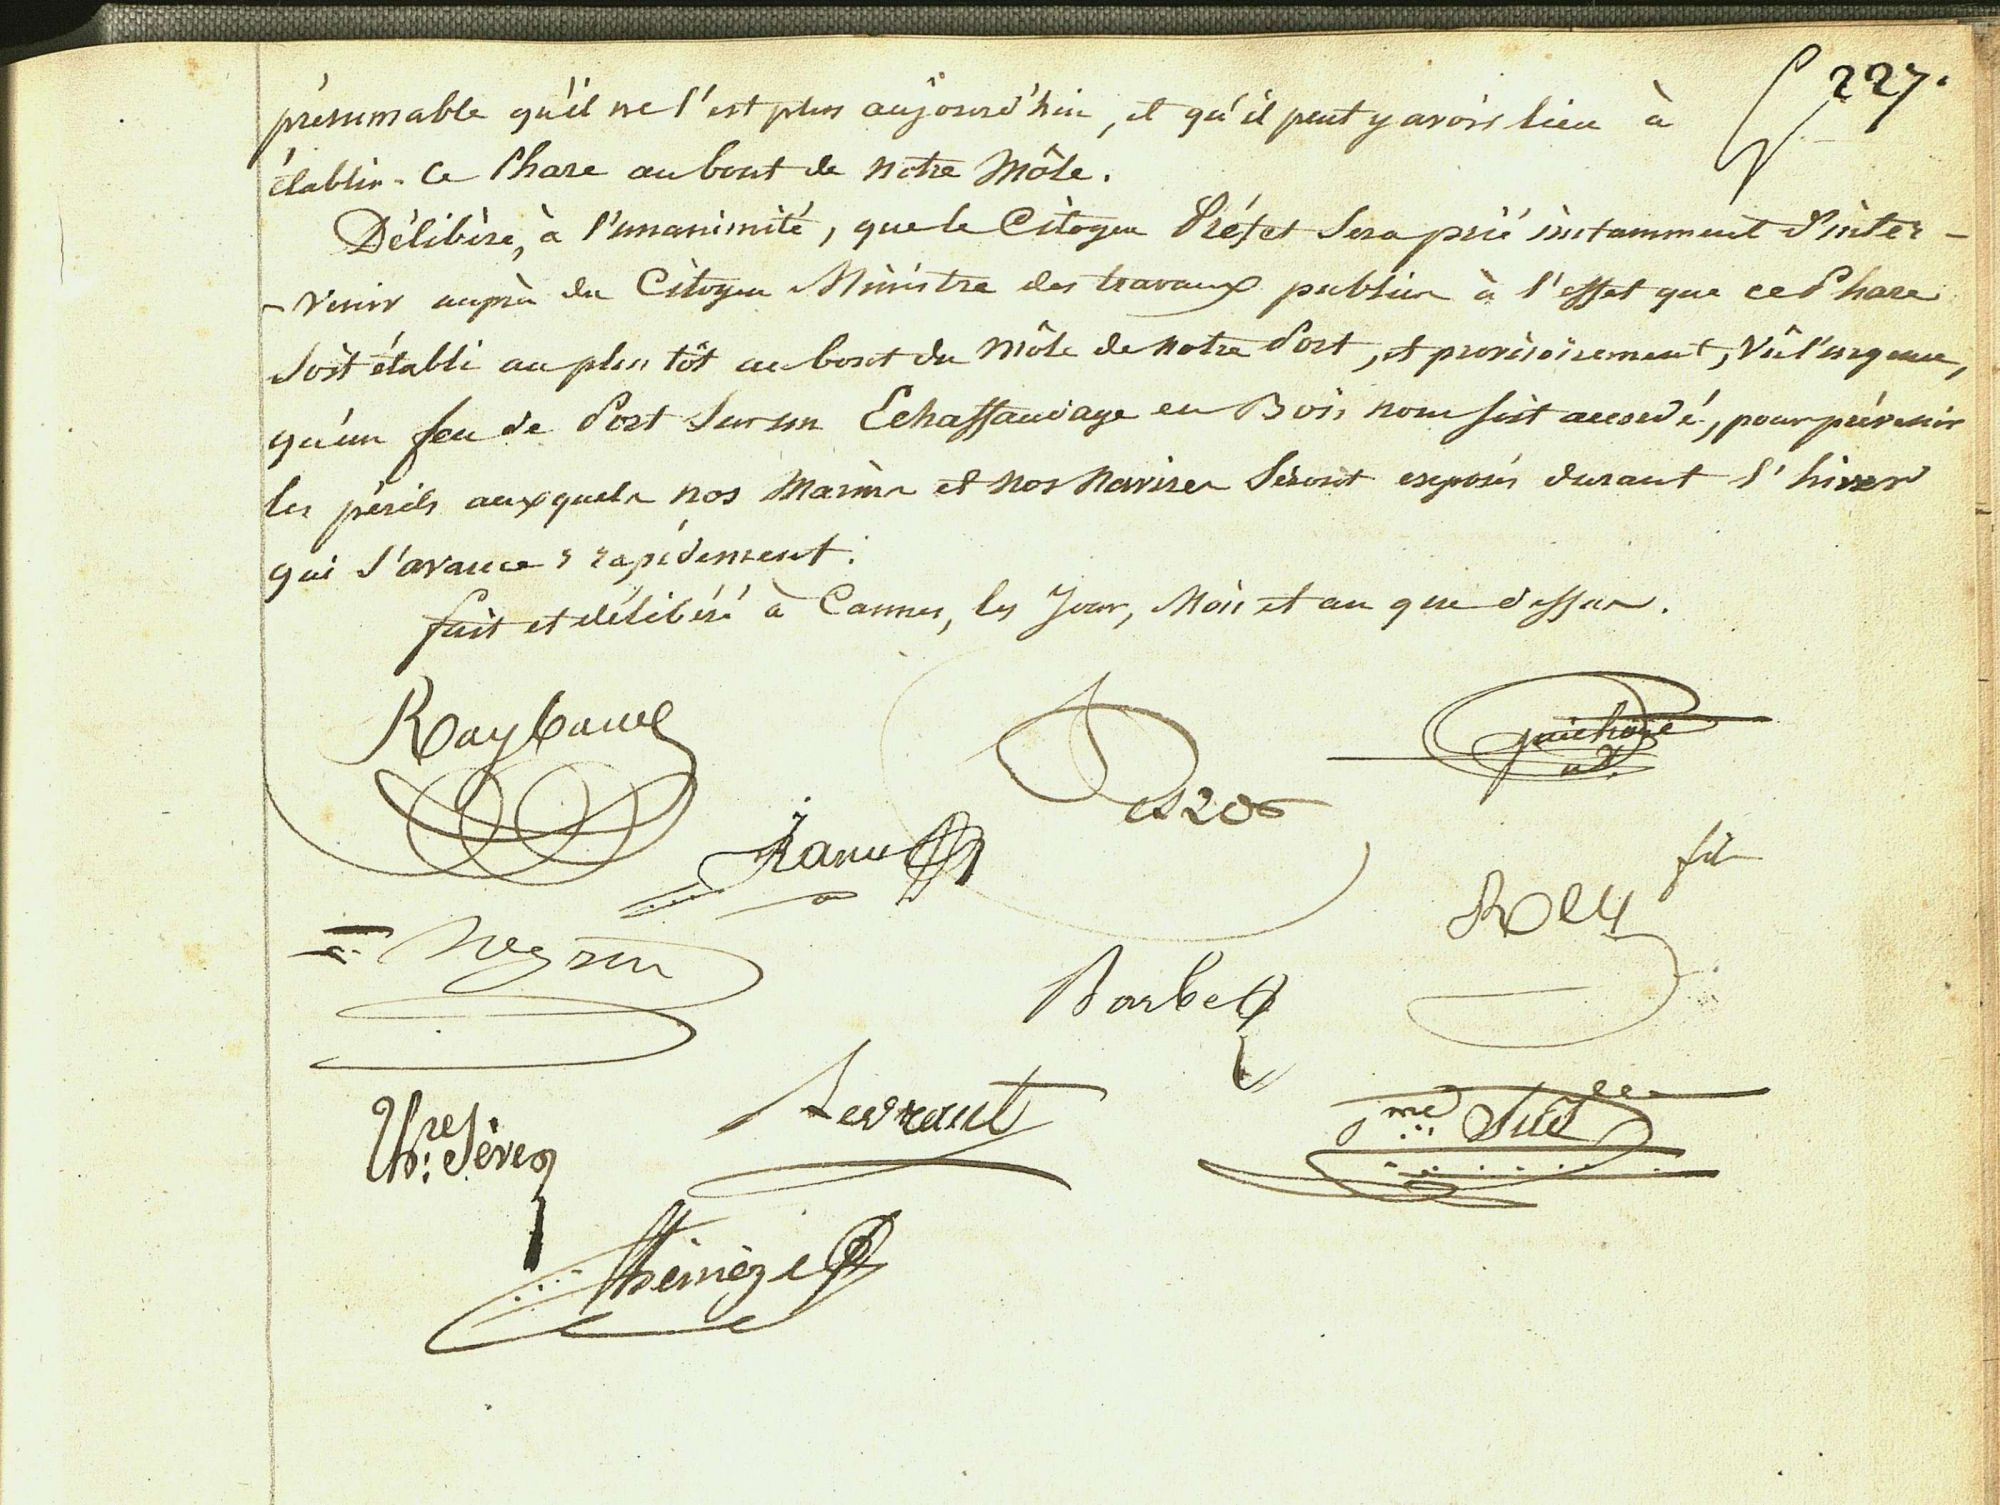 227.
présumable qu'il ne l'est plus aujourd'hui, et qu'il peut y avoir lieu à
établir ce Phare au bout de notre Môle.
Délibère, à l'unanimité, que le Citoyen Préfet sera prié instamment d'inter-
-venir auprès du Citoyen Ministre des travaux publics à l'effet que ce Phare
soit établi au plus tôt au bout du Môle de notre Port, et provisoirement, Vû l'urgence,
qu'un feu de Port sur un Echaffaudage en Bois nous soit accordé, pour prévenir
les périls auxquels nos Marins et nos Navires seront exposés durant l'hiver
qui s'avance rapidement.
fait et délibéré à Cannes, les Jour, Mois et an que dessus.
Raybaud
Barbe
Negrin
fils
Th.re Sève